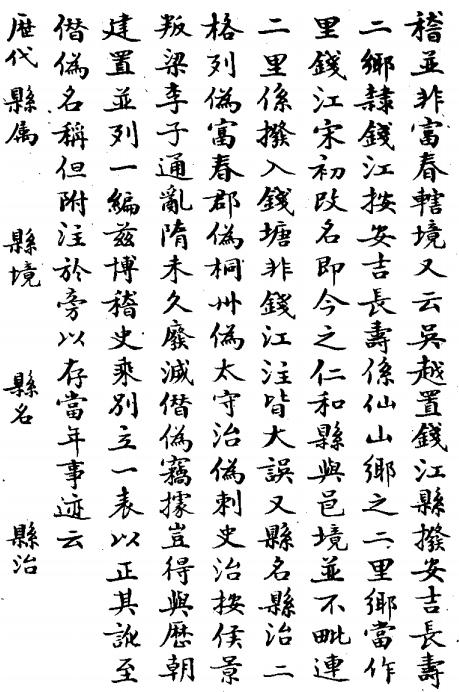 稽並非富春轄境又云吳越置錢江縣撥安吉長壽
二鄉隷錢江按安吉長壽係仙山鄉之二里鄉當作
里錢江宋初改名即今之仁和縣與邑境並不毗連
二里係撥入錢塘非錢江注皆大誤又縣名縣治二
格列偽富春郡偽桐州偽太守治偽刺史治按侯景
叛梁李子通亂隋未久廢滅僭偽竊據豈得與歷朝
建置並列一編茲博稽史乘別立一表以正其訛至
僭偽名稱但附注於旁以存當年事迹云
歴代 縣属 縣境 縣名 縣治